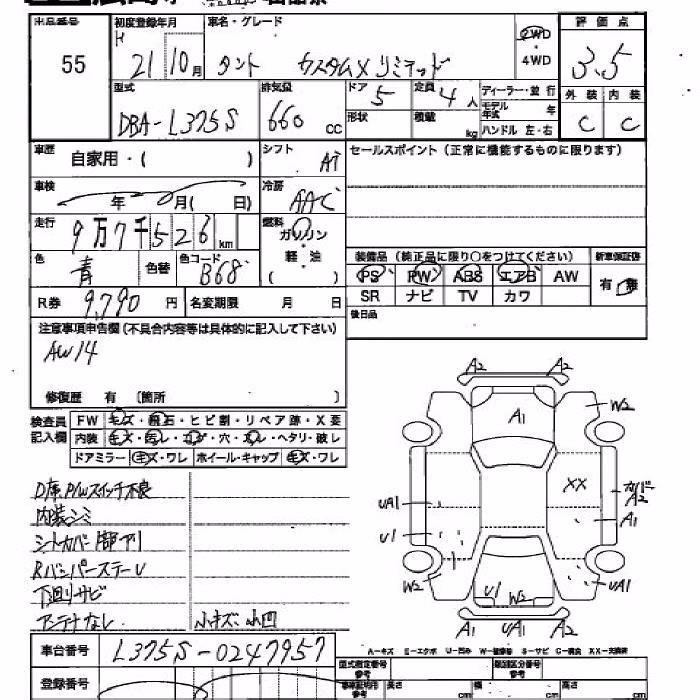 出品番号 初度登録年月 車名・グレード 2WD・4WD 評価点
55 H 21 10月 タント カスタムXリミテッド 3.5
型式 排気量 ドア 定員 ディーラー・並行 外装 内装
DBA-L375S 660 cc 5 4人 モデル年式 年 C C
形状 積載 kg ハンドル 左・右
車歴 自家用・( ) シフト AT セールスポイント(正常に機能するものに限ります)
車検 年 月( 日) 冷房 AAC
走行 9万7千526km 燃料 ガソリン・軽・油 ( )
色 青 色替 色コード B68
装備品(純正品に限り○をつけてください) 新車保証書
PS PW ABS エアB AW 有・無
SR ナビ TV カワ
R券 9,790円 名変期限 月 日 後日品
注意事項申告欄(不具合内容等は具体的に記入して下さい)
AW14
修復歴 有 〔箇所 〕
検査員記入欄 FW キズ・飛石・ヒビ割・リペア跡・X要
内装 キズ・汚レ・コゲ・穴・スレ・ヘタリ・破レ
ドアミラー キズ・ワレ ホイール・キャップ キズ・ワレ
D席P/Wスイッチ不良
内装シミ
シートカバー1部ナシ
RバンパーステーU
下廻リサビ
アンテナなし 小キズ・小凹
A2 A2
A1 W2
XX カバーA2
UA1 A1
U1
W2 U1 W2 UA1
A1 UA1 A2
A-キズ E-エクボ U-凹み W-補修跡 S-サビ C-腐食 XX-交換済
車台番号 L375S-0247957
登録番号
型式指定番号参考 類別区分番号参考
車検証明用参考 長さ cm 幅 cm 高さ cm